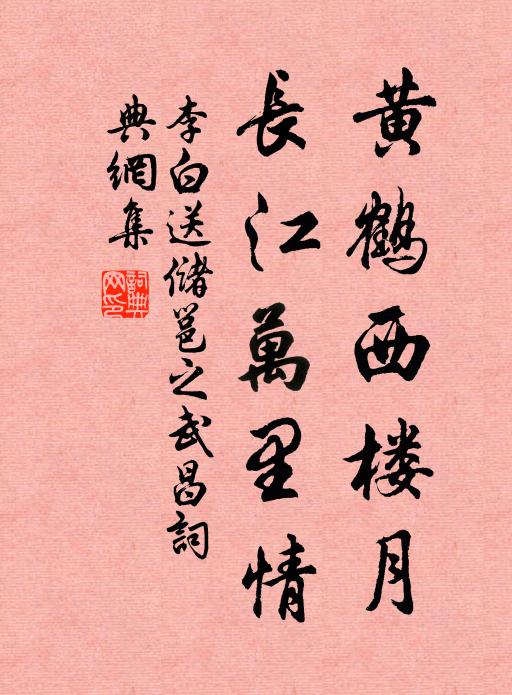 黄鶴西楼月
長江萬里情
李白送儲邕之武昌詞
典網集
詞典网印